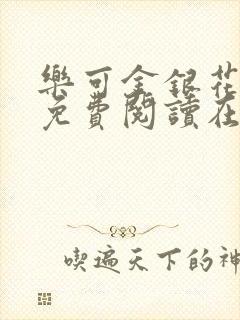 樂可金銀花
免費閱讀在
喫遍天下的神